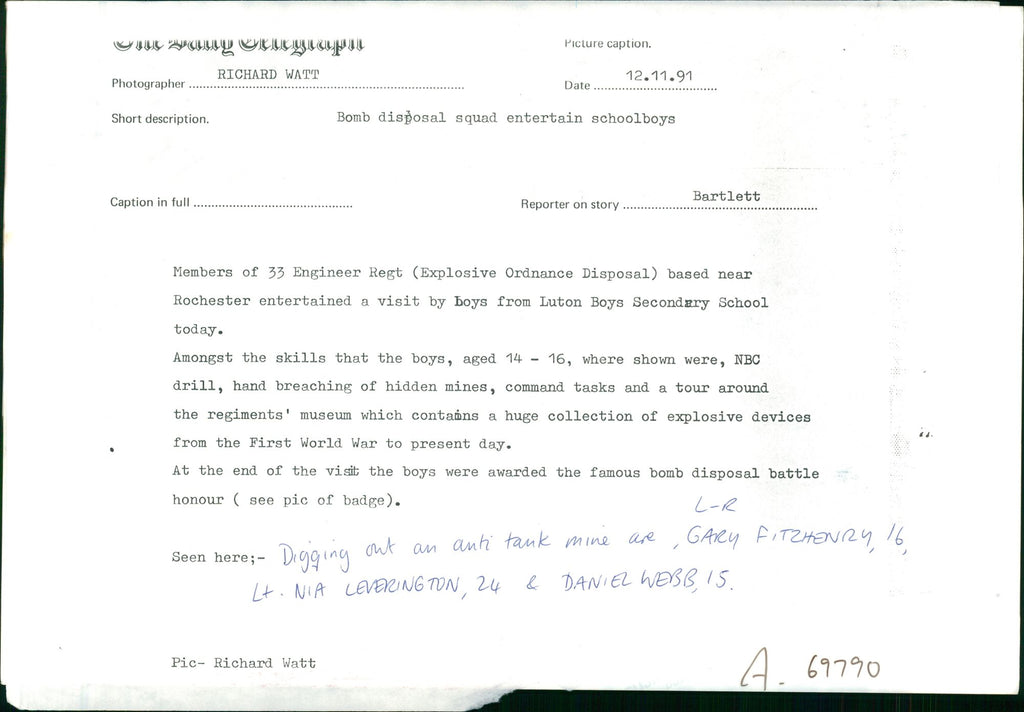 The Daily Telegraph
Picture caption.
Photographer RICHARD WATT
Date 12.11.91
Short description. Bomb disposal squad entertain schoolboys
Caption in full
Reporter on story Bartlett
Members of 33 Engineer Regt (Explosive Ordnance Disposal) based near
Rochester entertained a visit by boys from Luton Boys Secondary School
today.
Amongst the skills that the boys, aged 14 - 16, where shown were, NBC
drill, hand breaching of hidden mines, command tasks and a tour around
the regiments' museum which contains a huge collection of explosive devices
from the First World War to present day.
At the end of the visit the boys were awarded the famous bomb disposal battle
honour ( see pic of badge).
L-R
Seen here;- Digging out an anti tank mine are, GARY FITZHENRY, 16,
Lt. NIA LEVERINGTON, 24 & DANIEL WEBB, 15.
Pic- Richard Watt
A. 69790